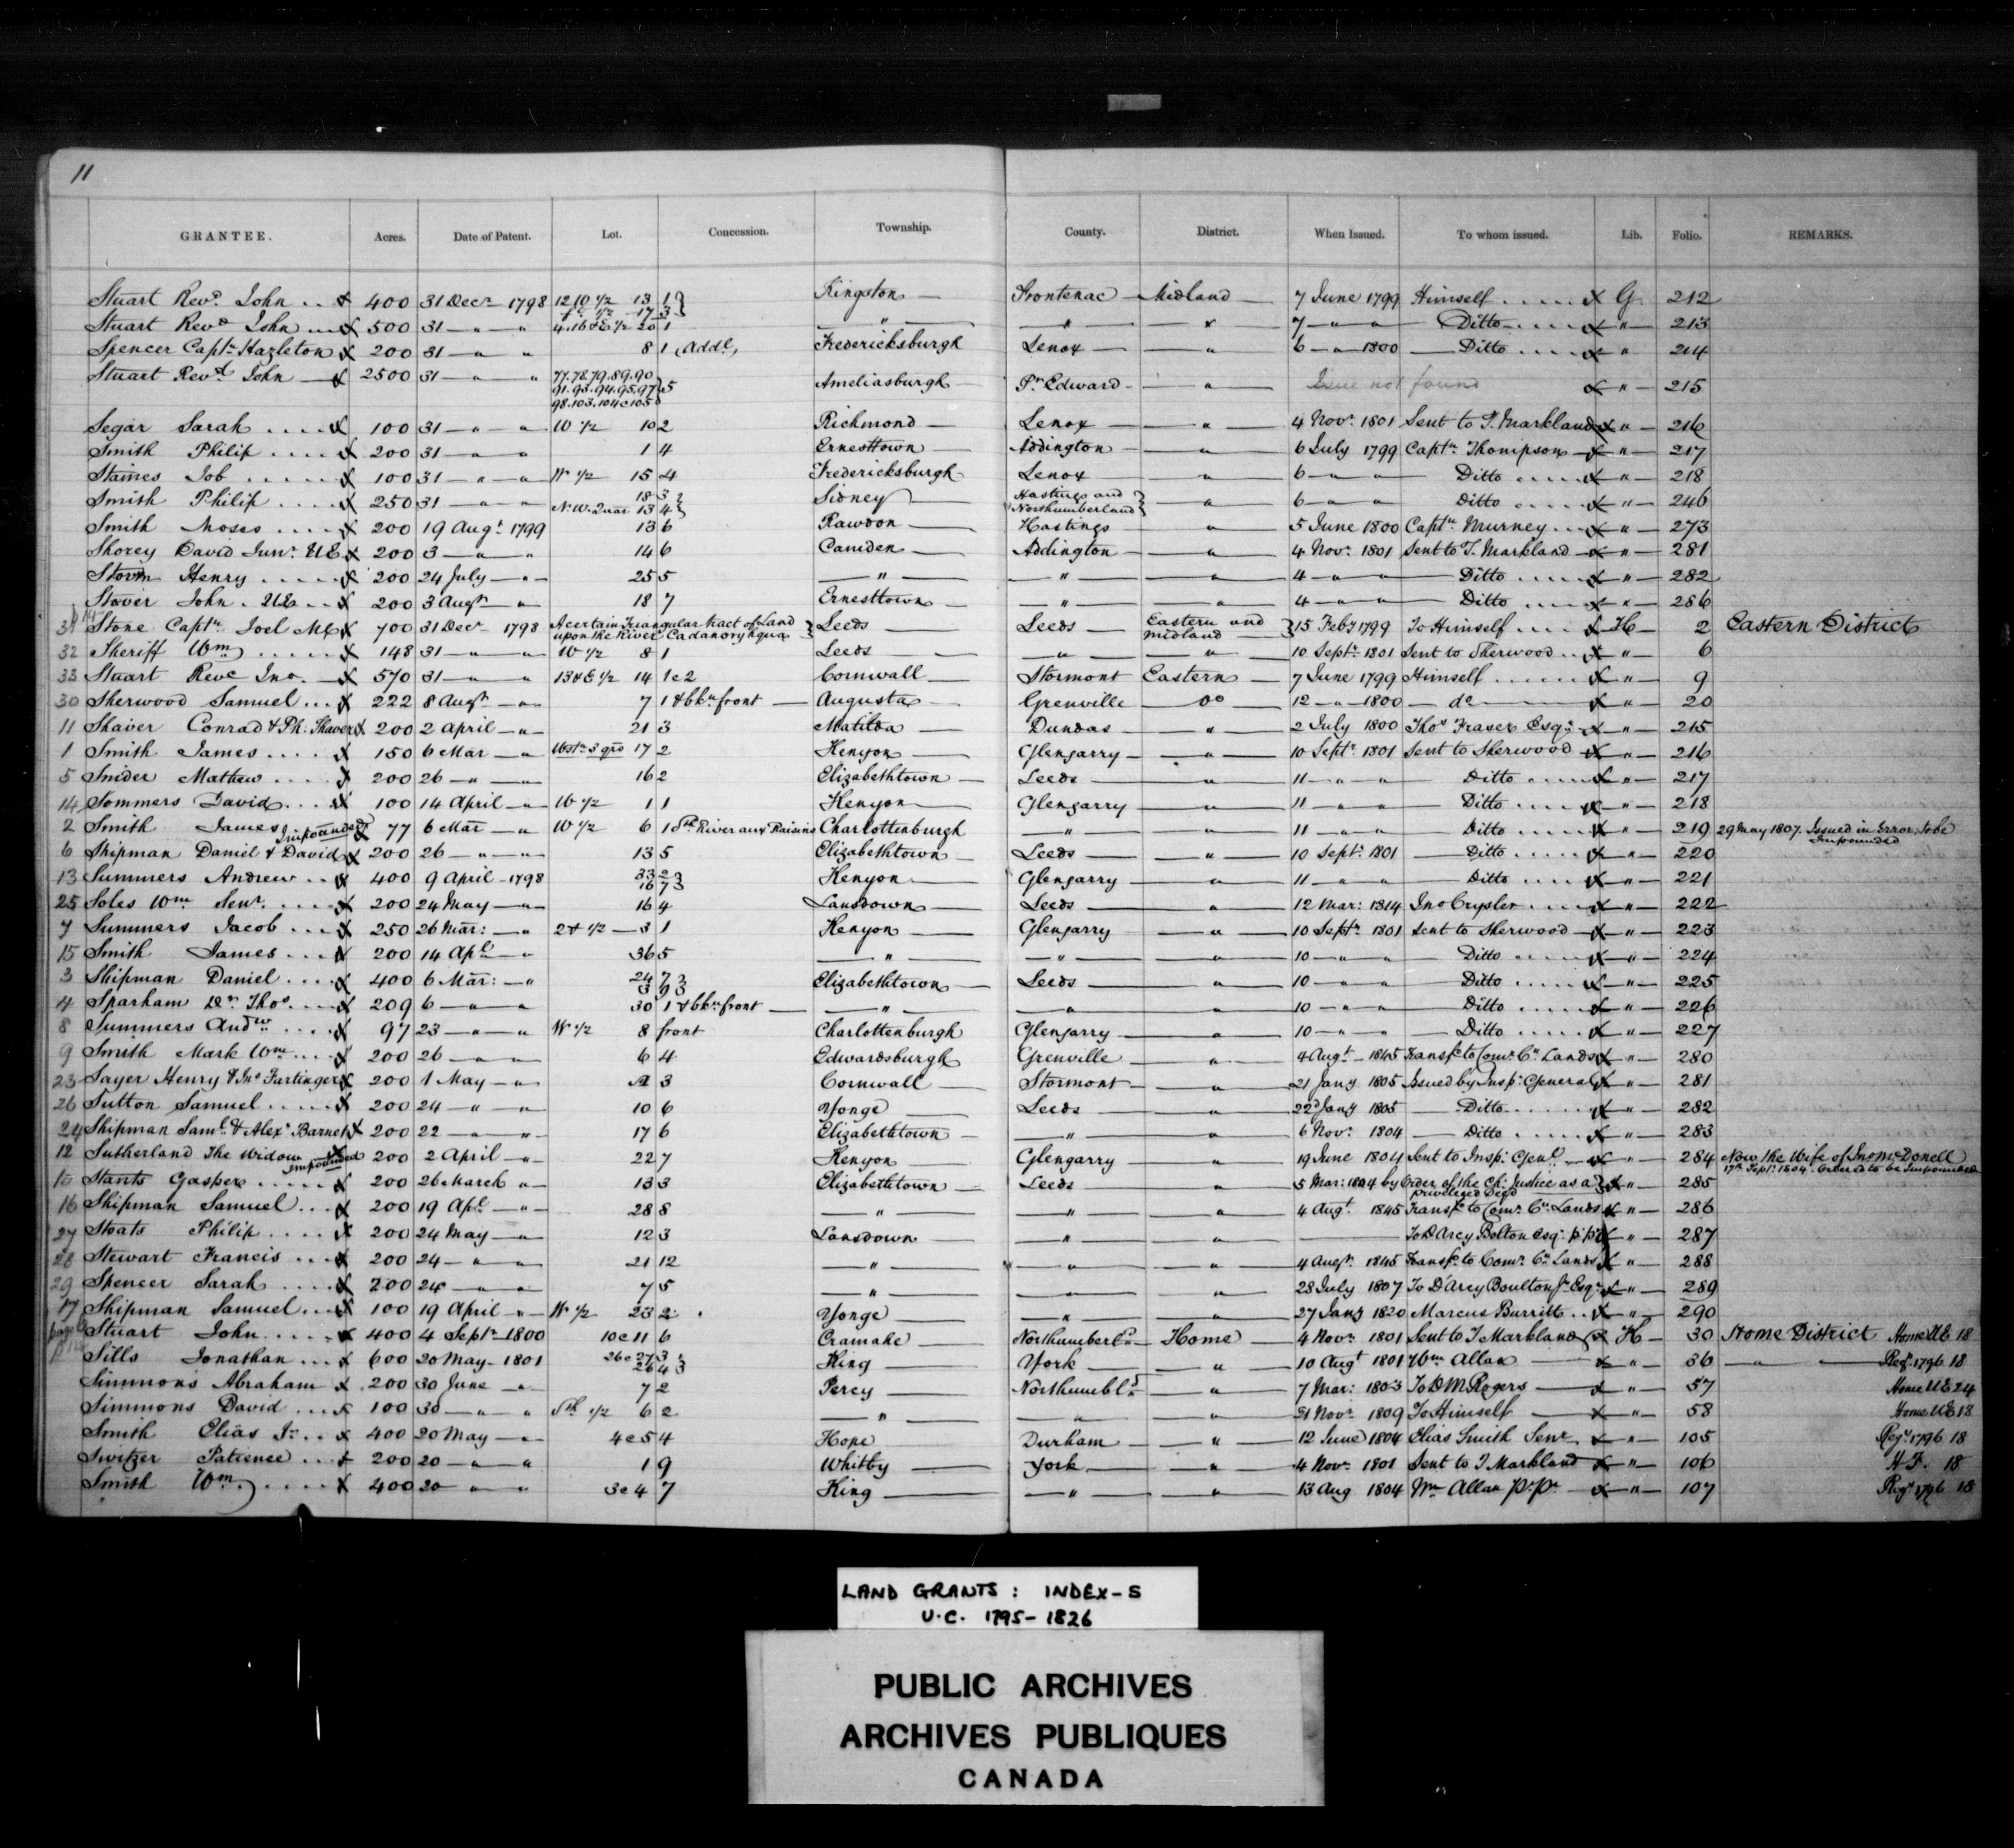 11
GRANTEE. Acres. Date of Patent. Lot. Concession. Township. County. District. When Issued. To whom issued. Lib. Folio. REMARKS.
Stuart Revd. John .. x 400 31 Decr 1798 12 W 1/2 13 1 } Kingston — Frontenac — Midland — 7 June 1799 Himself ..... x G 212
1/2 17 3
Stuart Revd John ... x 500 31 — " " 4.16 & E 1/2 20 1 — " — — " — — " — 7 — " " — Ditto .... x " — 213
Spencer Captn Hazleton x 200 31 — " " 8 1 Addl, Fredericksburgh Lenox — — " — 6 — " 1800 — Ditto .... x " 214
Stuart Revd John — x 2500 31 — " " 77.78.79.89.90 91.93.94.95.97 98.103.104 & 105 } 5 Ameliasburgh — Pr. Edward — — " — Issue not found x " — 215
Segar Sarah .... x 100 31 — " " W 1/2 10 2 Richmond — Lenox — — " — 4 Novr 1801 Sent to T. Markland x " — 216
Smith Philip .... x 200 31 — " " 1 4 Ernesttown — Addington — — " — 6 July 1799 Captn Thompson — x " — 217
Staines Job ..... x 100 31 — " " W 1/2 15 4 Fredericksburgh Lenox — " — 6 — " " Ditto .... x " — 218
Smith Philip .... x 250 31 — " " 18 3 } Sidney — Hastings and } — " — 6 — " " Ditto .... x " — 246
N.W. Quar 13 4 Northumberland
Smith Moses .... x 200 19 Augt 1799 13 6 Rawdon — Hastings — " — 5 June 1800 Captn Murney ... x " — 273
Shorey David Junr. UE x 200 3 — " " 14 6 Camden — Addington — — " — 4 Novr 1801 Sent to T. Markland — x " — 281
Storm Henry ..... x 200 24 July — " — 25 5 — " — — " — — " — 4 — " " Ditto .... x " — 282
Stover John . UE ... x 200 3 Augt " — 18 7 Ernesttown — — " — — " — 4 — " " Ditto .... x " — 286
31 Stone Captn Joel x 700 31 Decr 1798 A certain Triangular tract of Land } Leeds — Leeds — Eastern and } 15 Feby 1799 To Himself .... x H — 2 Eastern District
upon the River Cadanoryhqua Midland —
32 Sheriff Wm ..... x 148 31 — " " W 1/2 8 1 Leeds — — " — — " — 10 Septr 1801 Sent to Sherwood .. x " — 6
33 Stuart Revd Jno. — x 570 31 — " " 13 & E 1/2 14 1 & 2 Cornwall — Stormont Eastern — 7 June 1799 Himself ...... x " — 9
30 Sherwood Samuel ... x 222 8 Augt — " — 7 1 & bkn front — Augusta — Grenville — Do — 12 — " — 1800 — do — x " — 20
11 Shaver Conrad & Ph: Shaver x 200 2 April — " — 21 3 Matilda — Dundas — — " — 2 July 1800 Thos Fraser Esqr — x " — 215
1 Smith James .... x 150 6 Mar — " West 3 qrs 17 2 Kenyon — Glengarry — — " — 10 Septr 1801 Sent to Sherwood — x " — 216
5 Snider Mathew .... x 200 26 — " — " 16 2 Elizabethtown — Leeds — — " — 11 — " " — Ditto .... x " — 217
14 Sommers David .... x 100 14 April — " W 1/2 1 1 Kenyon — Glengarry — " — 11 — " " — Ditto .... x " — 218
2 Smith James Impounded x 77 6 Mar — " W 1/2 6 1 Sth River aux Raisins Charlottenburgh — " — — " — 11 — " " — Ditto .... x " — 219 29 May 1807. Issued in Error, to be
Impounded
6 Shipman Daniel & David x 200 26 — " — " 13 5 Elizabethtown — Leeds — — " — 10 Septr 1801 — Ditto .... x " — 220
13 Summers Andrew .. x 400 9 April — 1798 33 2 } Kenyon — Glengarry — " — 11 — " " — Ditto .... x " — 221
16 7
25 Soles Wm Senr. .... x 200 24 May — " — 16 4 Lansdown — Leeds — — " — 12 Mar: 1814 Jno Crysler .... x " — 222
7 Summers Jacob ... x 250 26 Mar: — " 2 & 1/2 — 3 1 Kenyon — Glengarry — " — 10 Septr 1801 Sent to Sherwood — x " — 223
15 Smith James ... x 200 14 Apl — " 36 5 — " — — " — — " — 10 — " " Ditto .... x " — 224
3 Shipman Daniel .... x 400 6 Mar: — " 24 7 } Elizabethtown — Leeds — — " — 10 — " " Ditto .... x " — 225
3 9
4 Sparham Dr. Thos. ... x 209 6 — " " 30 1 & bkn front — — " — — " — — " — 10 — " " Ditto .... x " — 226
8 Summers Andw .... x 97 23 — " — " W 1/2 8 front Charlottenburgh Glengarry — " — 10 — " " — Ditto .... x " — 227
9 Smith Mark Wm ... x 200 26 — " — " 6 4 Edwardsburgh Grenville — " — 4 Augt — 1845 Transfd to Comr Cn Lands x " — 280
23 Sayer Henry & Jno Fartinger x 200 1 May — " 3 Cornwall — Stormont — — " — 21 Jany 1805 Issued by Inspr General x " — 281
26 Sutton Samuel ..... x 200 24 — " — " 10 6 Yonge — Leeds — — " — 22d Jany 1805 — Ditto ..... x " — 282
24 Shipman Saml & Alexr Barnet x 200 22 — " " 17 6 Elizabethtown — — " — — " — 6 Novr 1804 — Ditto .... x " — 283
12 Sutherland The Widow Impounded x 200 2 April — " 22 7 Kenyon — Glengarry — " — 19 June 1804 Sent to Inspr Genl — x " — 284 Now the Wife of Jno McDonell
17th Septr 1804. Ordered to be Impounded
10 Stants Gasper ..... x 200 26 March " 13 3 Elizabethtown — Leeds — — " — 5 Mar: 1804 by Order of the Ch: Justice as a } x " — 285
privileged Deed
16 Shipman Samuel ... x 200 19 Apl — " — 28 8 — " — — " — — " — 4 Augt 1845 Transfd to Comr Cn Lands x " — 286
27 Stoats Philip .... x 200 24 May — " 12 3 Lansdown — — " — — " — — To D'Arcy Bolton Esqr. x " — 287
28 Stewart Francis ... x 200 24 — " " 21 12 — " — — " — — " — 4 Augt 1845 Transfd to Comr Cn Lands x " — 288
29 Spencer Sarah .... x 200 24 — " " 7 5 — " — — " — — " — 28 July 1807 To D'Arcy Boulton Jr Esqr x " — 289
17 Shipman Samuel ... x 100 19 April — " W 1/2 23 2 Yonge — — " — — " — 27 Jany 1820 Marcus Burritt .. x " — 290
Stuart John ..... x 400 4 Septr 1800 10 & 11 6 Cramahe — Northumberld — Home — 4 Novr 1801 Sent to T Markland x H — 30 Home District Home UE 18
Sills Jonathan ... x 600 20 May — 1801 26 & 27 3 } King — York — — " — 10 Augt 1801 Wm Allan — x " — 36 — " — Regr. 1796 18
26 4
Simmons Abraham x 200 30 June — " 7 2 Percy — Northumbld — " — 7 Mar: 1803 To D M. Rogers — x " — 57 Home UE 24
Simmons David ... x 100 30 — " " Sth 1/2 6 2 — " — — " — — " — 21 Novr 1809 To Himself — x " — 58 Home UE 18
Smith Elias Jr. .. x 400 20 May — " 4 & 5 4 Hope — Durham — — " — 12 June 1804 Elias Smith Senr — x " — 105 Regr. 1796 18
Switzer Patience ... x 200 20 — " " 1 9 Whitby — York — — " — 4 Novr 1801 Sent to T Markland — x " — 106 18
Smith Wm ..... x 400 20 — " " 3 & 4 7 King — — " — — " — 13 Aug 1804 Wm Allan P.Pr — x " — 107 Regr 1796 18
LAND GRANTS : INDEX-S
U.C. 1795-1826
PUBLIC ARCHIVES
ARCHIVES PUBLIQUES
CANADA